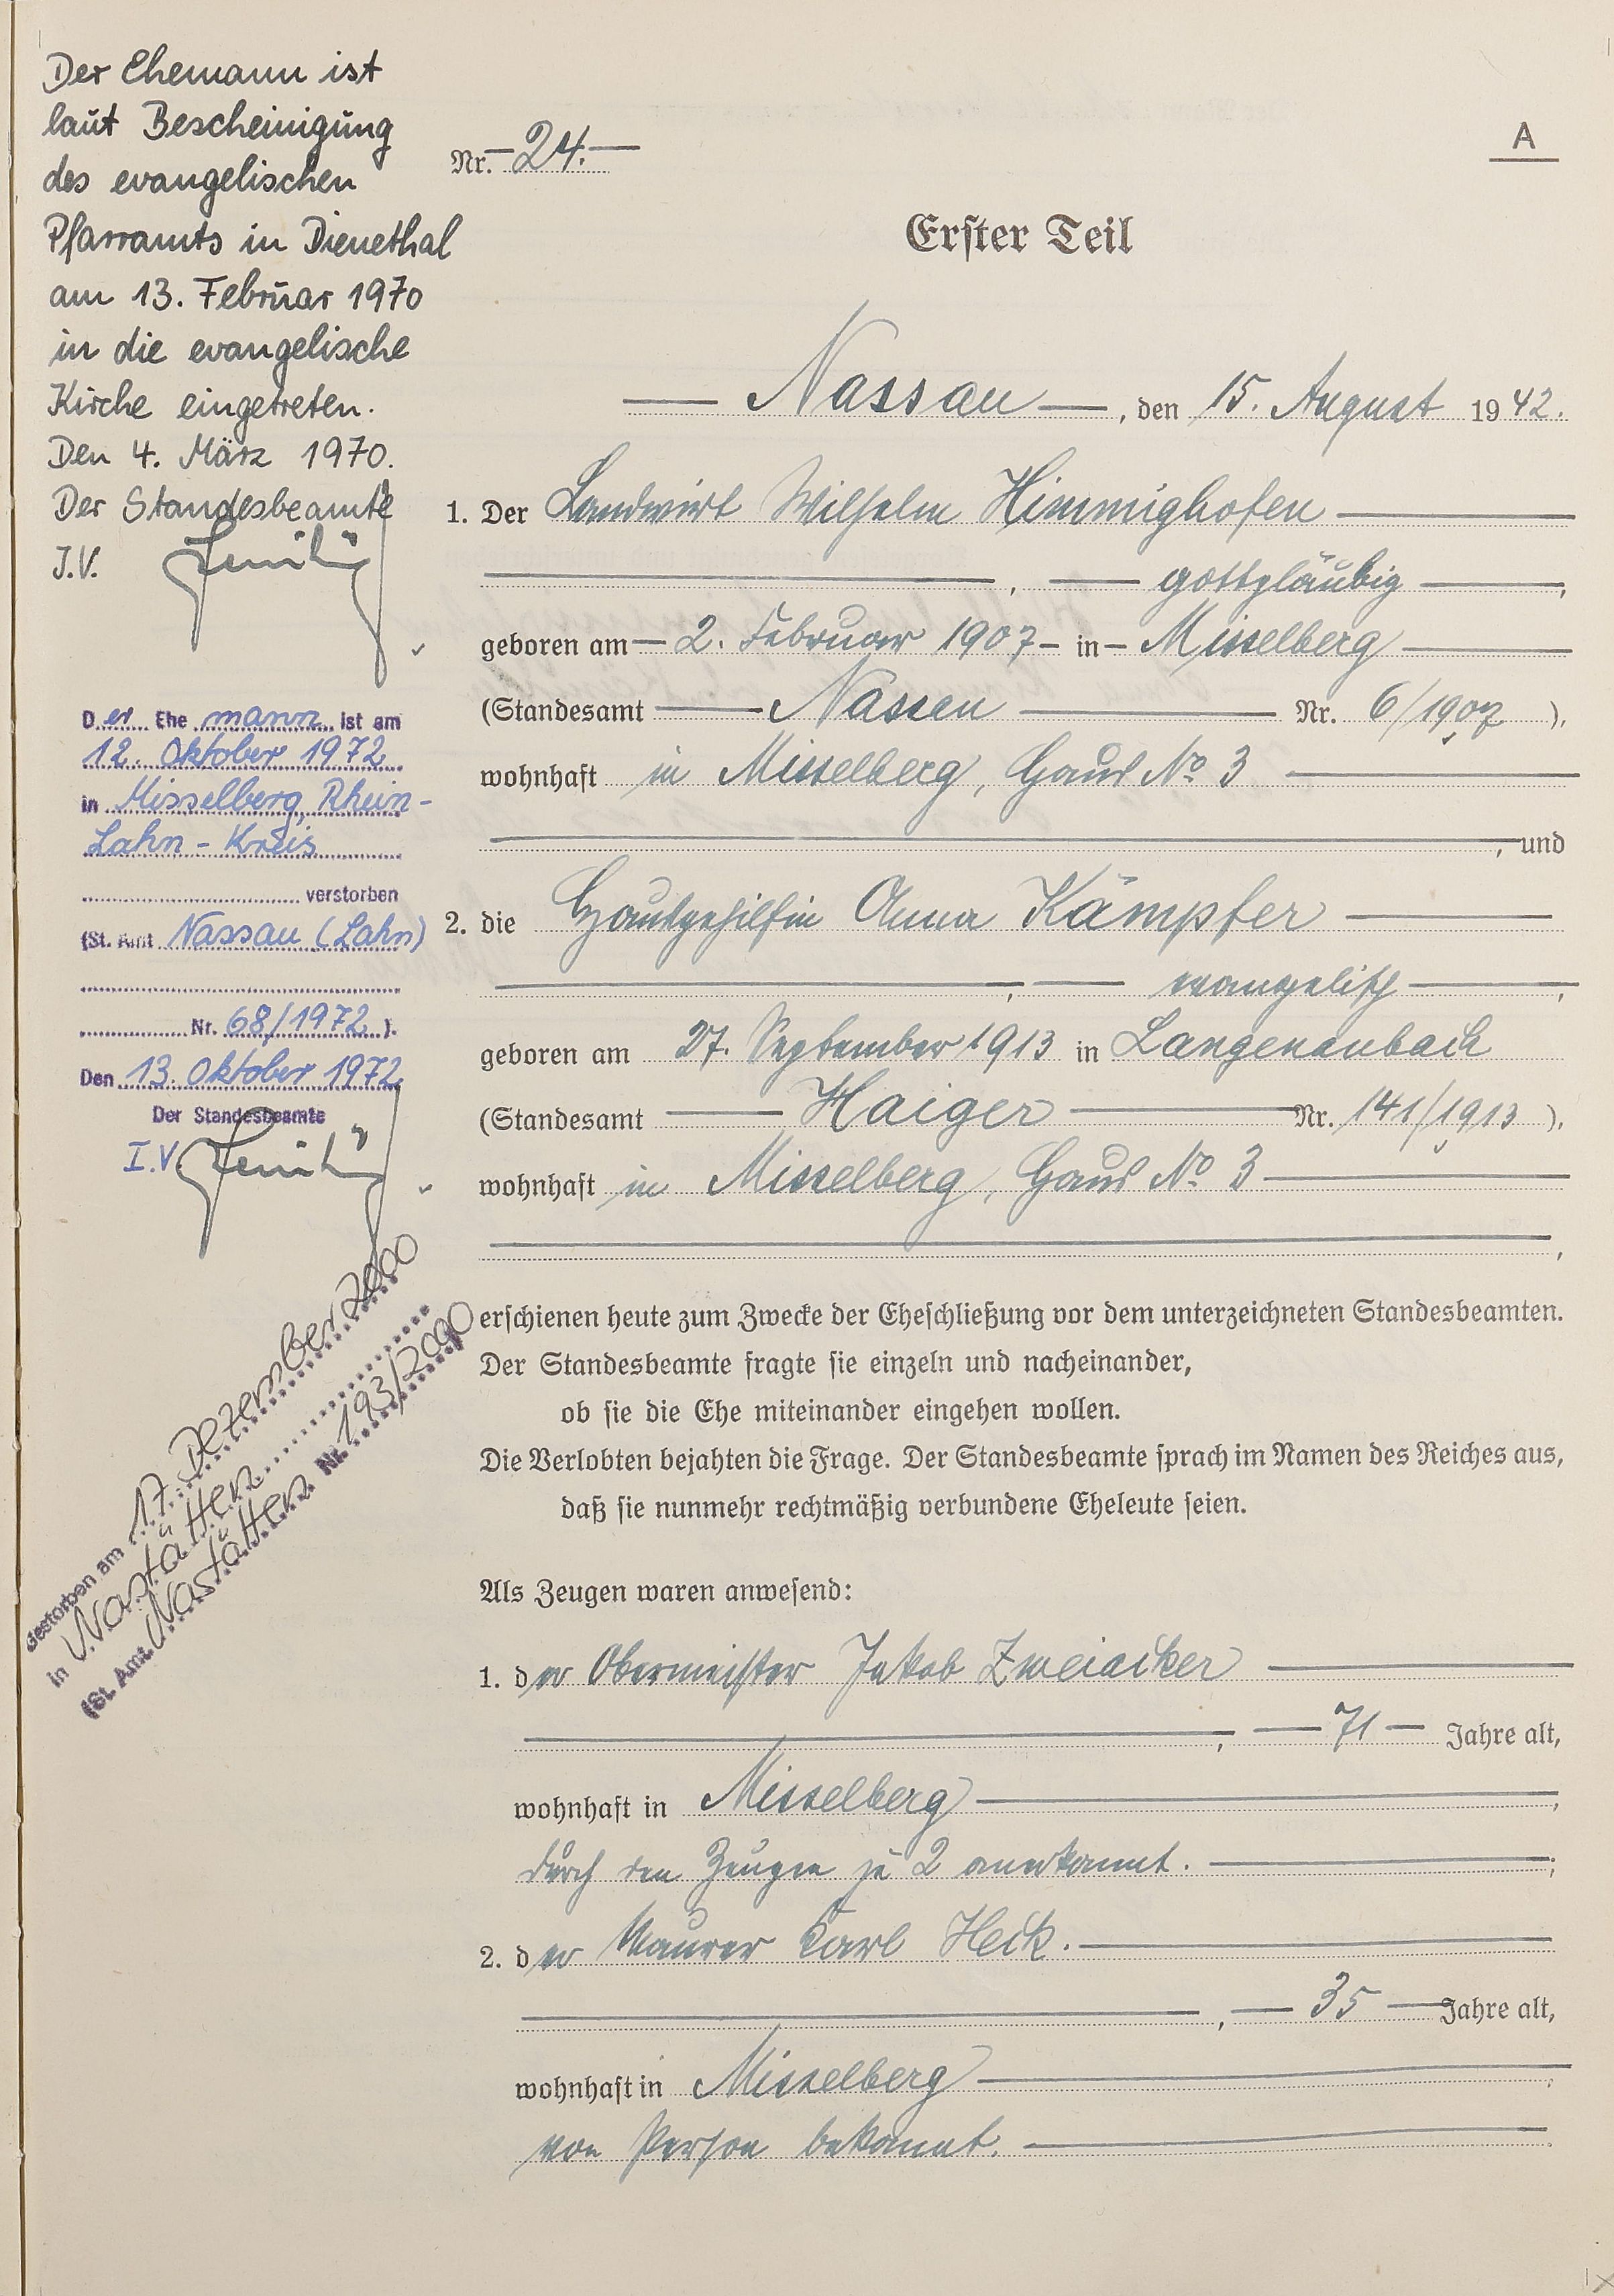 Der Ehemann ist
laut Bescheinigung
des evangelischen
Pfarramts in Dienethal
am 13. Februar 1970
in die evangelische
Kirche eingetreten.
Den 4. März 1970.
Der Standesbeamte
I.V.
Der Ehe mann ist am
12. Oktober 1972
in Misselberg, Rhein-
Lahn-Kreis
verstorben
(St. Amt Nassau (Lahn)
Nr. 68/1972 ).
Den 13. Oktober 1972
Der Standesbeamte
I.V.
Gestorben am 17. Dezember 2000
in Nastätten
(St. Amt Nastätten Nr. 193/2000
Nr. 24.
A
Erster Teil
Nassau, den 15. August 1942.
1. Der Landwirt Wilhelm Himmighofen
, gottgläubig,
geboren am 2. Februar 1907 in Misselberg
(Standesamt Nassau Nr. 6/1907 ),
wohnhaft in Misselberg, Haus No 3
, und
2. die Hausgehilfin Anna Kämpfer
, evangelisch,
geboren am 27. September 1913 in Langenaubach
(Standesamt Haiger Nr. 141/1913 ),
wohnhaft in Misselberg, Haus No 3
,
erschienen heute zum Zwecke der Eheschließung vor dem unterzeichneten Standesbeamten.
Der Standesbeamte fragte sie einzeln und nacheinander,
ob sie die Ehe miteinander eingehen wollen.
Die Verlobten bejahten die Frage. Der Standesbeamte sprach im Namen des Reiches aus,
daß sie nunmehr rechtmäßig verbundene Eheleute seien.
Als Zeugen waren anwesend:
1. der Obermeister Jakob Zweiacker
, 71 Jahre alt,
wohnhaft in Misselberg,
durch den Zeugen zu 2 anerkannt.;
2. der Maurer Karl Heck.
, 35 Jahre alt,
wohnhaft in Misselberg,
von Person bekannt.